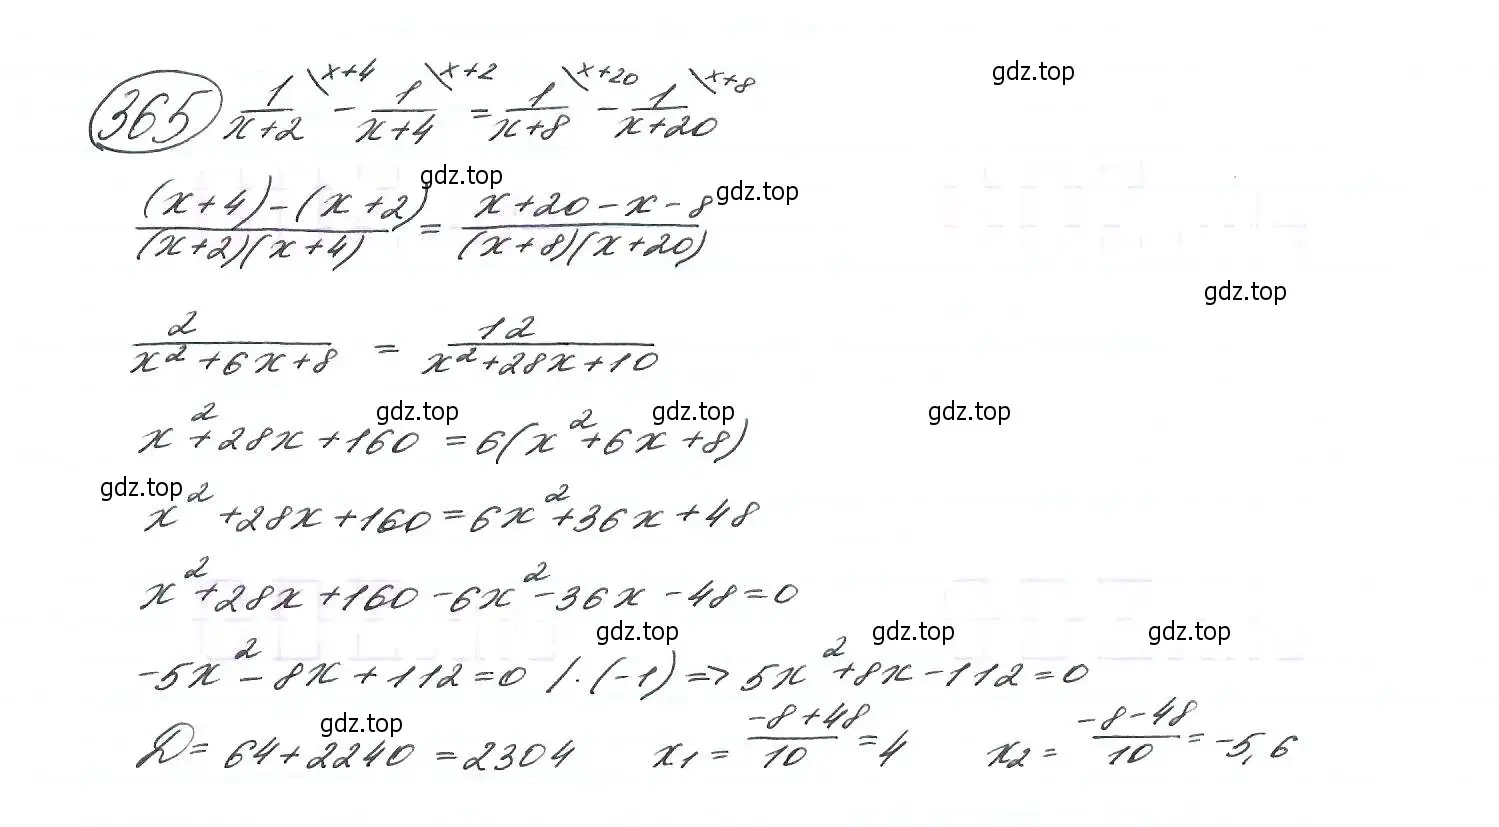 365 1/(x+2) \x+4 - 1/(x+4) \x+2 = 1/(x+8) \x+20 - 1/(x+20) \x+8
gdz.top
gdz.top gdz.top
((x+4)-(x+2))/((x+2)(x+4)) = (x+20-x-8)/((x+8)(x+20))
gdz.top
2/(x²+6x+8) = 12/(x²+28x+10)
gdz.top gdz.top gdz.top
x²+28x+160=6(x²+6x+8)
gdz.top
x²+28x+160=6x²+36x+48
x²+28x+160-6x²-36x-48=0
gdz.top gdz.top gdz.top
-5x²-8x+112=0 /·(-1) => 5x²+8x-112=0
gdz.top
D=64+2240=2304 x₁=(-8+48)/10=4 x₂=(-8-48)/10=-5,6